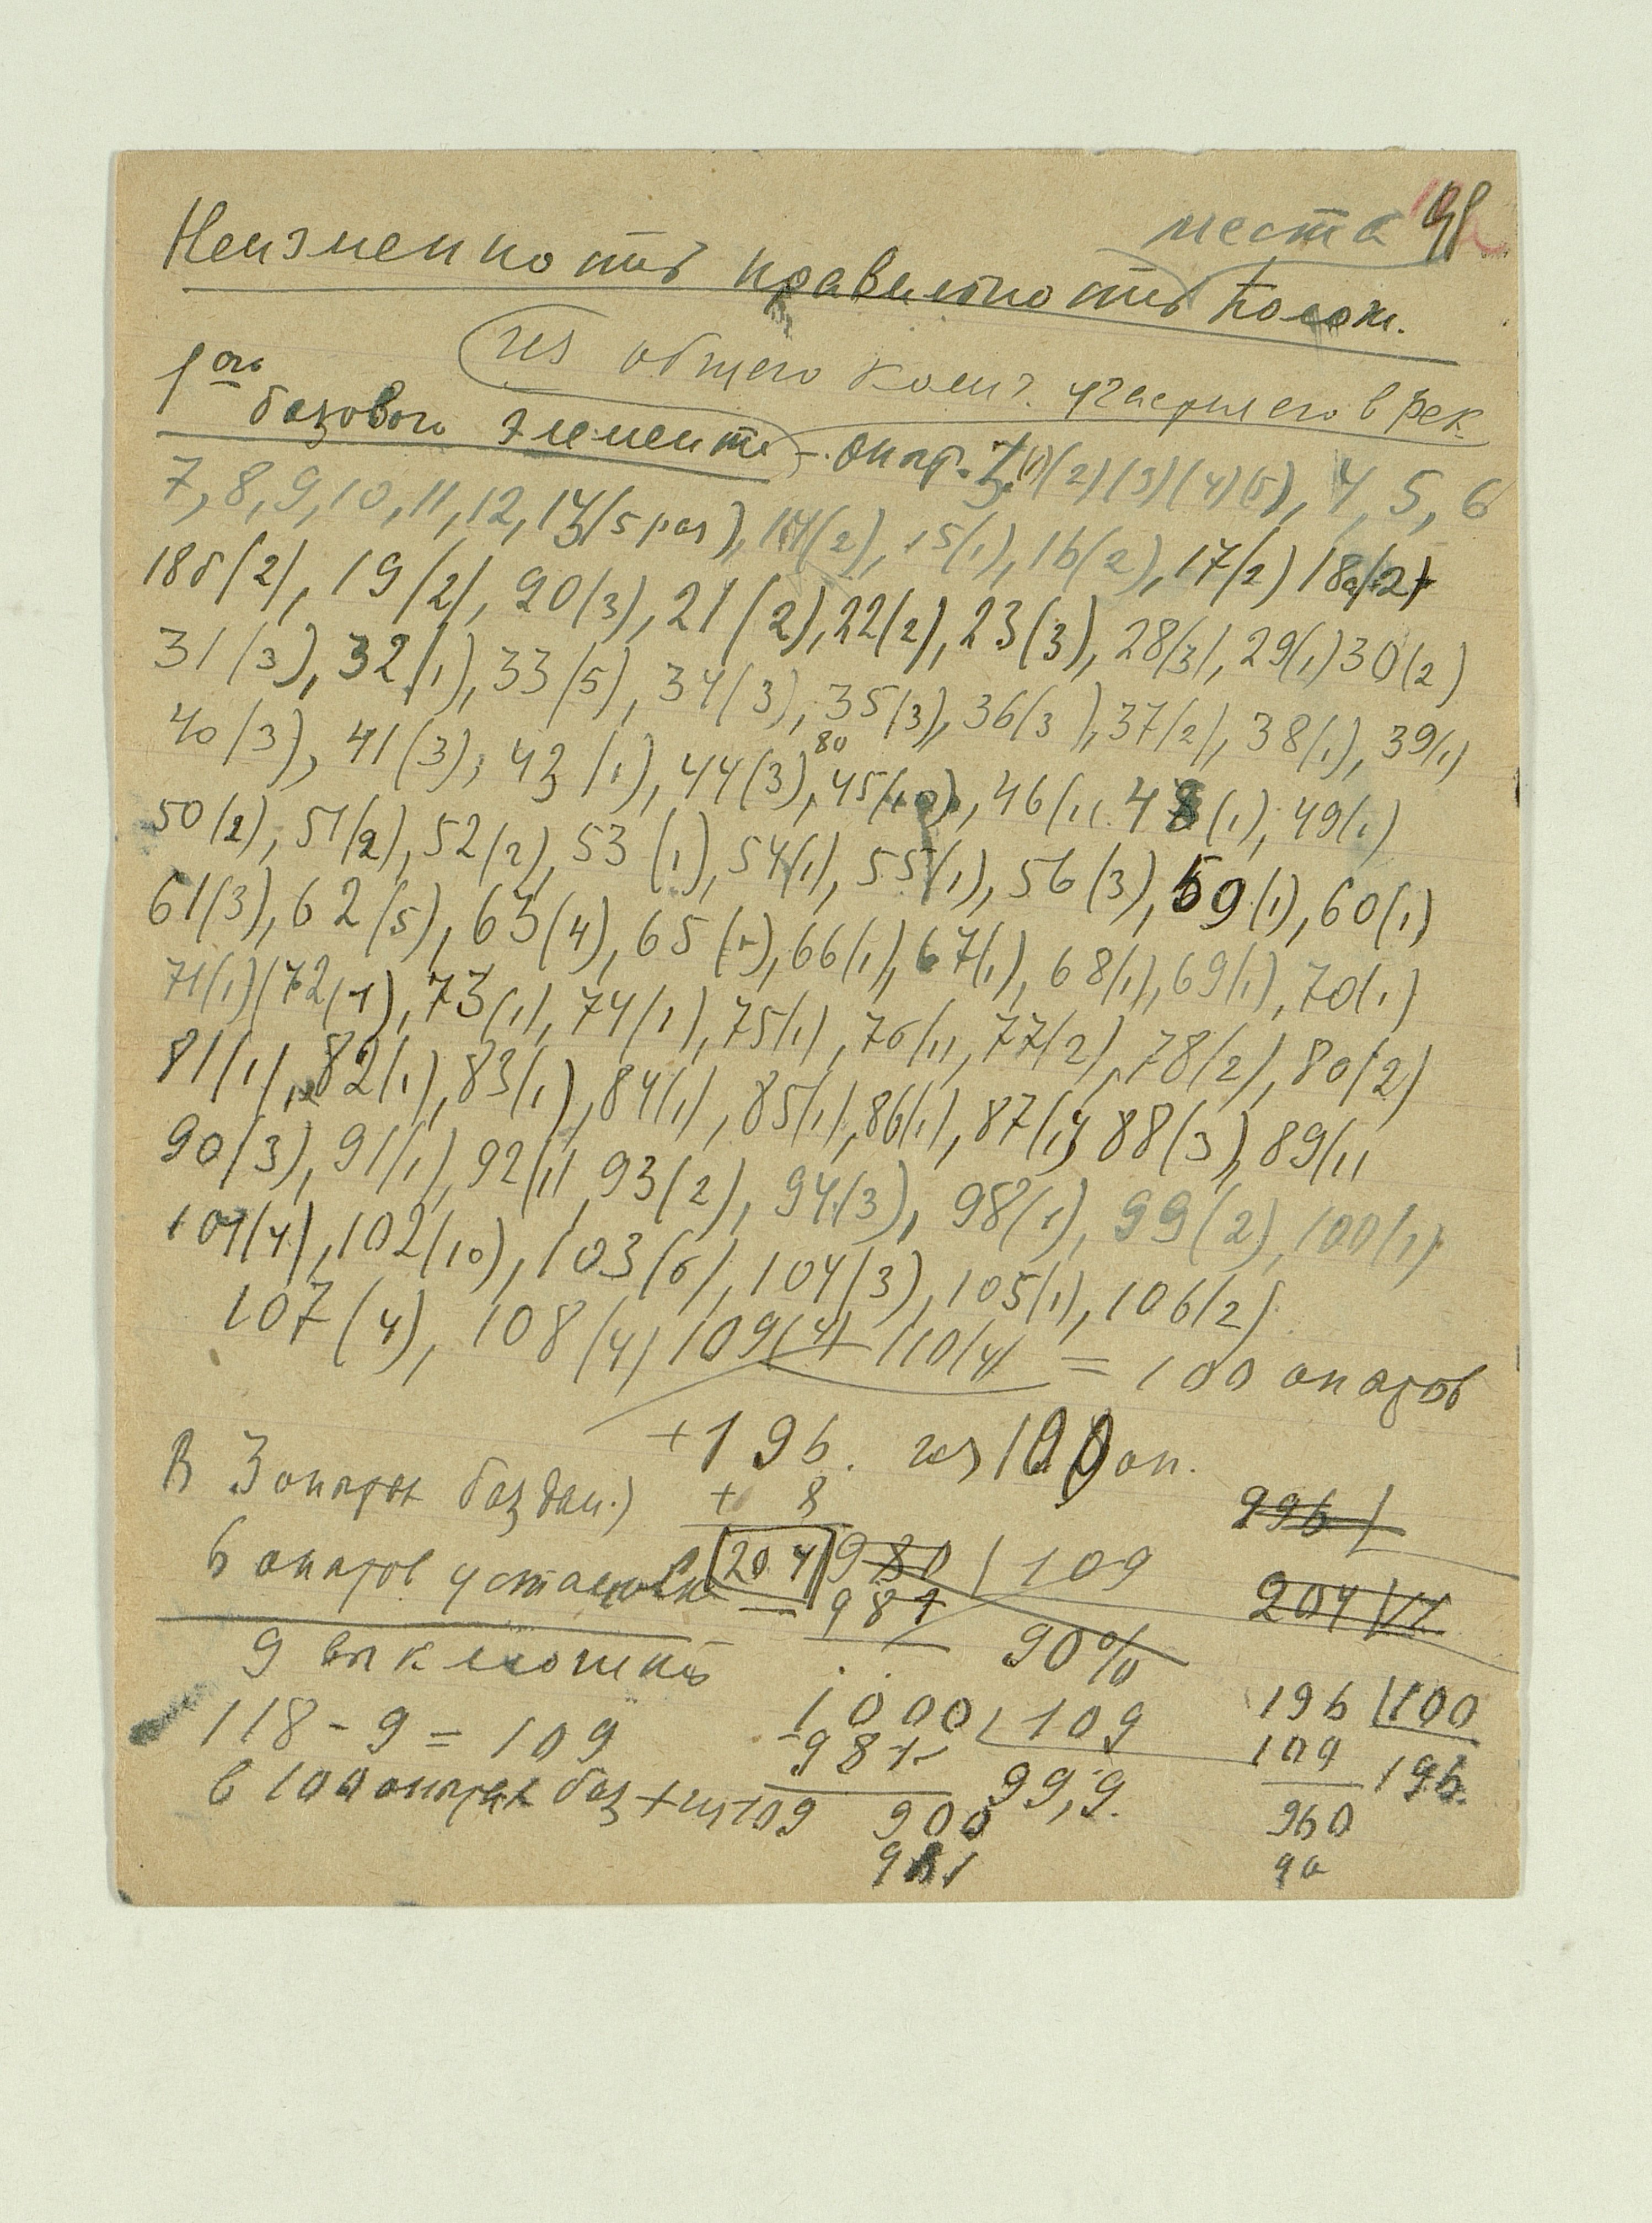 места
Неизменность правильность полож.
из общего колич. участия его в рек.
1ого базового элемента - опыт. 3(1)(2)(3)(4)(5), 4, 5, 6
7, 8, 9, 10, 11, 12, 13(5 раз), 14(2), 15(1), 16(2), 17(2) 18а(2)
18б(2), 19(2), 20(3), 21(2), 22(2), 23(3), 28(3), 29(1) 30(2)
31(3), 32(1), 33(5), 34(3), 35(3), 36(3), 37(2), 38(1), 39(1)
80
40(3), 41(3), 43(1), 44(3), 45(10), 46(1), 48(1), 49(1)
50(2), 51(2), 52(2), 53(1), 54(1), 55(1), 56(3), 59(1), 60(1)
61(3), 62(5), 63(4), 65(1), 66(1), 67(1), 68(1), 69(1), 70(1)
71(1) 72(1), 73(1), 74(1), 75(1), 76(1), 77(2), 78(2), 80(2)
81(1), 82(1), 83(1), 84(1), 85(1), 86(1), 87(1), 88(3), 89(1)
90(3), 91(1), 92(1) 93(2), 94(3), 98(1), 99(2), 100(1)
101(4), 102(10), 103(6), 104(3), 105(1), 106(2)
107(4), 108(4) 109(4) 110(4) = 100 опытов
+196. из 100 оп.
В 3 опытах баз
+ 8
296
6 опытов установки
204 980 109
981
90%
204
9 выключить
118 - 9 = 109
1000 109
981
99,9.
900
981
196 100
100 196.
960
90
в 100 опытах баз + из 109